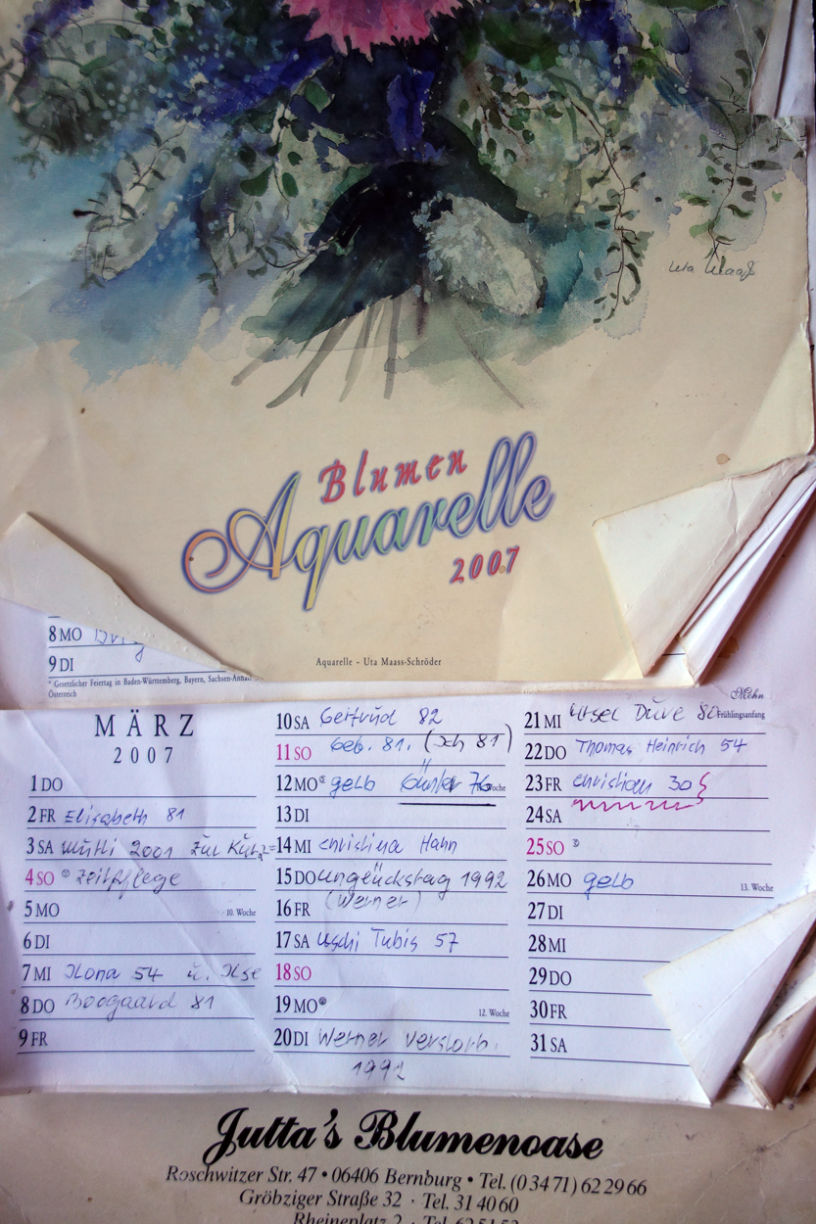 Uta Maaß
Blumen
Aquarelle
2007
Aquarelle - Uta Maass-Schröder
8 MO
9 DI
* Gesetzlicher Feiertag in Baden-Württemberg, Bayern, Sachsen-Anhalt
Österreich
Mohn
MÄRZ
2007
1 DO
2 FR Elisabeth 81
3 SA Mutti 2001 zur Kurz=
4 SO Zeitpflege
5 MO 10. Woche
6 DI
7 MI Ilona 54 u. Ilse
8 DO Boogaard 81
9 FR
10 SA Gertrud 82
11 SO Geb. 81. (Ich 81)
12 MO gelb Günter 76 Woche
13 DI
14 MI Christina Hahn
15 DO Unglückstag 1992
(Werner)
16 FR
17 SA Uschi Tubis 57
18 SO
19 MO 12. Woche
20 DI Werner verstorb.
1992
21 MI Ursel Duve 80 Frühlingsanfang
22 DO Thomas Heinrich 54
23 FR Christian 30
24 SA
25 SO
26 MO gelb 13. Woche
27 DI
28 MI
29 DO
30 FR
31 SA
Jutta's Blumenoase
Roschwitzer Str. 47 • 06406 Bernburg • Tel. (0 34 71) 62 29 66
Gröbziger Straße 32 · Tel. 31 40 60
Rheineplatz 2 · Tel. 62 51 52